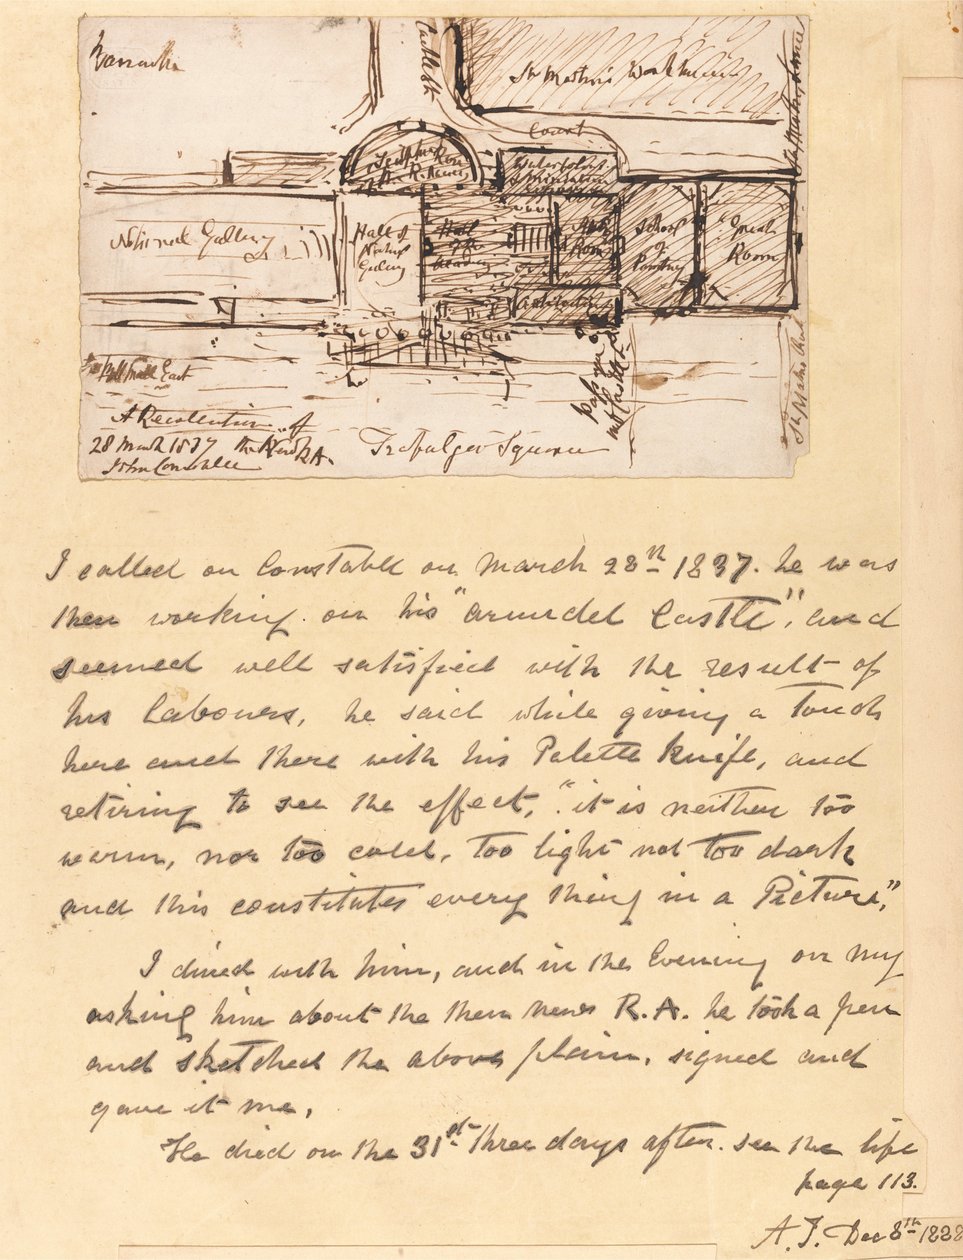 Barracks
Castle St
St Martin's Workhouse
Court
Sculpture Room
National Gallery
Hall of
National
Gallery
Hall
of the
Academy
School
of
Painting
Great
Room
Architecture
To Pall Mall East
Trafalgar Square
A Recollection of
28 March 1837 the New RA.
John Constable
I called on Constable on March 28th 1837. he was
then working on his "arundel Castle", and
seemed well satisfied with the result of
his labours, he said while giving a touch
here and there with his Palette knife, and
retiring to see the effect, "it is neither too
warm, nor too cold, too light not too dark
and this constitutes every thing in a Picture,"
I dined with him, and in the Evening on my
asking him about the then new R.A. he took a pen
and sketched the above plan, signed and
gave it me,
He died on the 31st three days after. see the life
page 113.
A. T. Dec 8th 1888